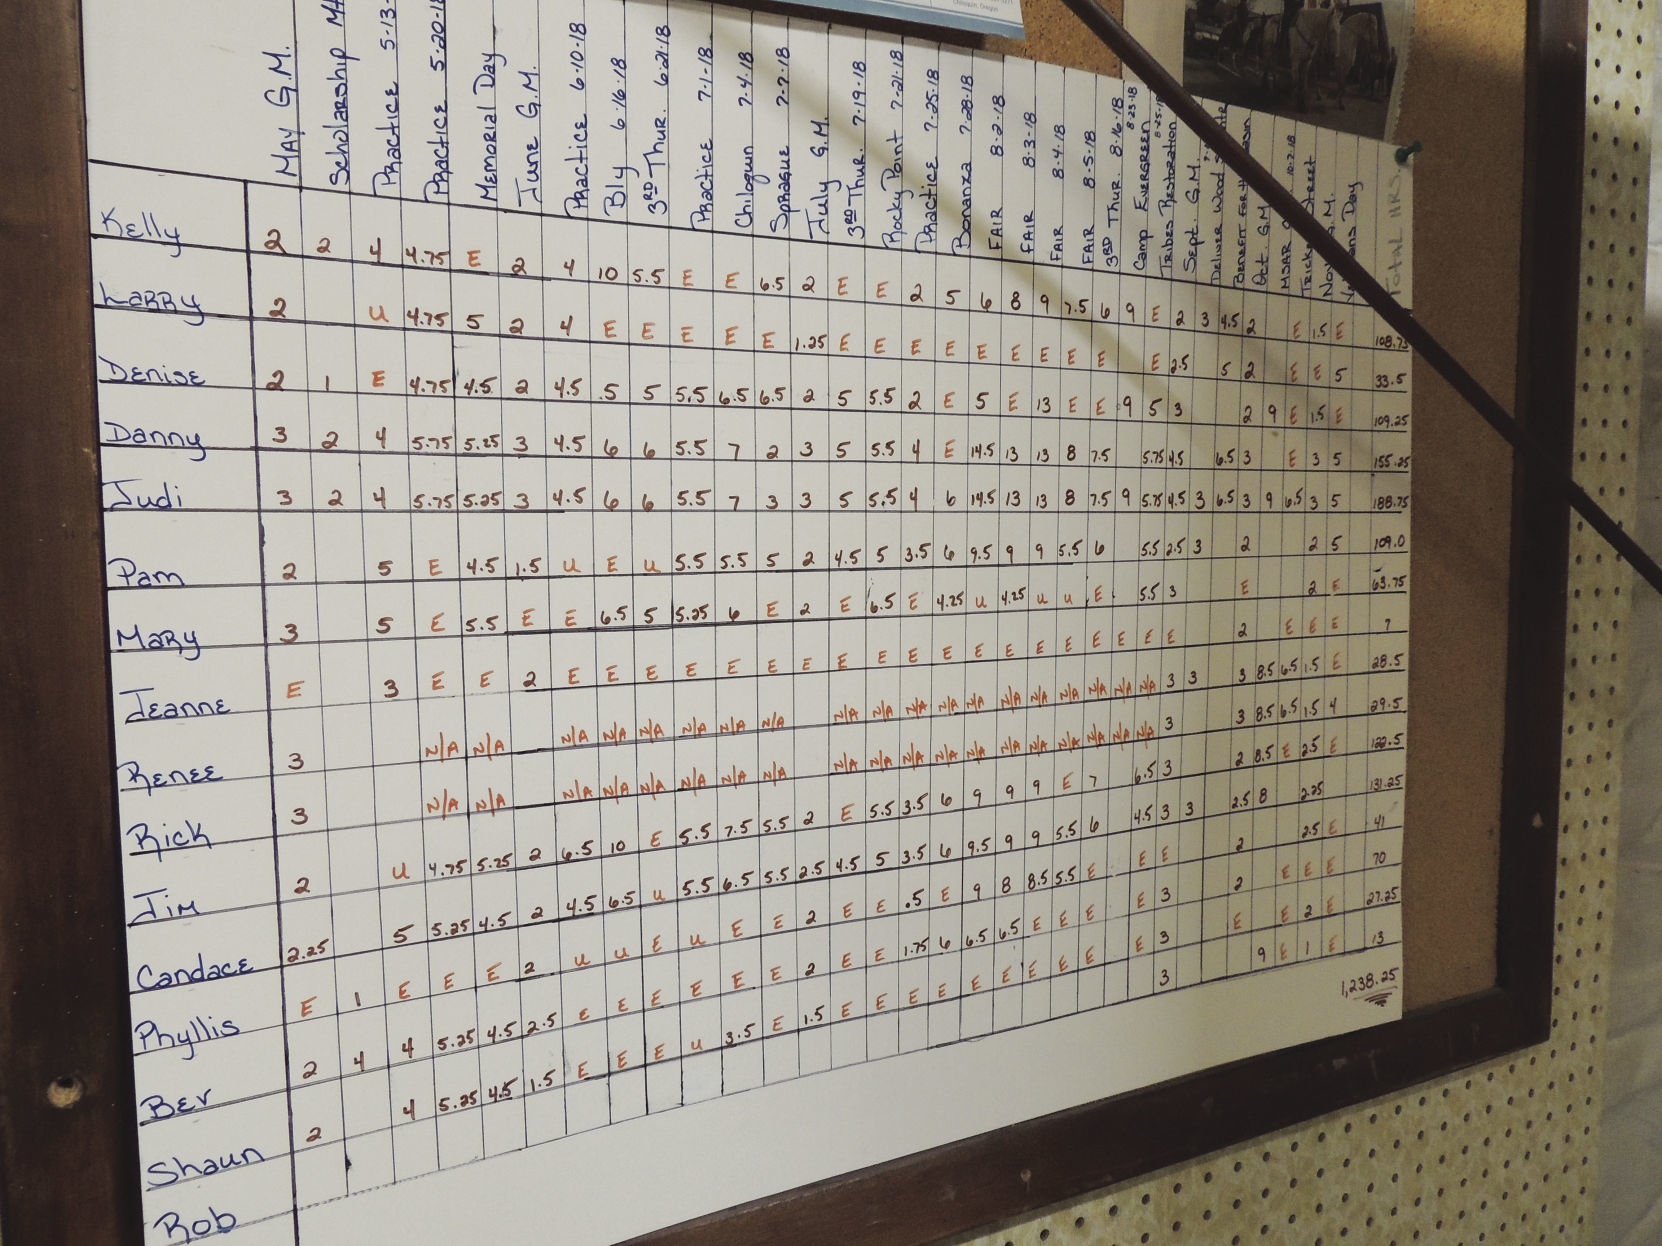 MAY G.M.
Scholarship
Practice 5-13-
Practice 5-20-18
Memorial Day
June G.M.
Practice 6-10-18
Bly 6-16-18
3RD Thur. 6-21-18
Practice 7-1-18
Chiloquin 7-4-18
Sprague 7-7-18
July G.M.
3RD Thur. 7-19-18
Rocky Point 7-21-18
Practice 7-25-18
Bonanza 7-28-18
FAIR 8-2-18
FAIR 8-3-18
FAIR 8-4-18
FAIR 8-5-18
3RD Thur. 8-16-18
Camp Evergreen 8-25-18
Tribes Restoration 8-25-1
Sept. G.M.
Deliver Wood
Benefit for
Oct. G.M.
MSAR 10-2-18
Trick Street
Nov G.M.
Day
Total HRS.
Kelly 2 2 4 4.75 E 2 4 10 5.5 E E 6.5 2 E E 2 5 6 8 9 7.5 6 9 E 2 3 4.5 2 E 1.5 E 108.75
Larry 2 U 4.75 5 2 4 E E E E E 1.25 E E E E E E E E E E 2.5 5 2 E E 5 33.5
Denise 2 1 E 4.75 4.5 2 4.5 5 5 5.5 6.5 6.5 2 5 5.5 2 E 5 E 13 E E 9 5 3 2 9 E 1.5 E 109.25
Danny 3 2 4 5.75 5.25 3 4.5 6 6 5.5 7 2 3 5 5.5 4 E 14.5 13 13 8 7.5 5.75 4.5 6.5 3 E 3 5 155.25
Judi 3 2 4 5.75 5.25 3 4.5 6 6 5.5 7 3 3 5 5.5 4 6 14.5 13 13 8 7.5 9 5.75 4.5 3 6.5 3 9 6.5 3 5 188.75
Pam 2 5 E 4.5 1.5 U E U 5.5 5.5 5 2 4.5 5 3.5 6 9.5 9 9 5.5 6 5.5 2.5 3 2 2 5 109.0
Mary 3 5 E 5.5 E E 6.5 5 5.25 6 E 2 E 6.5 E 4.25 U 4.25 U U E 5.5 3 E 2 E 63.75
Jeanne E 3 E E 2 E E E E E E E E E E E E E E E E E E E 2 E E E 7
Renee 3 N/A N/A N/A N/A N/A N/A N/A N/A N/A N/A N/A N/A N/A N/A N/A N/A N/A N/A N/A 3 3 3 8.5 6.5 1.5 E 28.5
Rick 3 N/A N/A N/A N/A N/A N/A N/A N/A N/A N/A N/A N/A N/A N/A N/A N/A N/A N/A N/A 3 3 8.5 6.5 1.5 4 29.5
Jim 2 U 4.75 5.25 2 6.5 10 E 5.5 7.5 5.5 2 E 5.5 3.5 6 9 9 9 E 7 6.5 3 2 8.5 E 2.5 E 122.5
Candace 2.25 5 5.25 4.5 2 4.5 6.5 U 5.5 6.5 5.5 2.5 4.5 5 3.5 6 9.5 9 9 5.5 6 4.5 3 3 2.5 8 2.25 131.25
Phyllis E 1 E E E 2 U U E U E E 2 E E .5 E 9 8 8.5 5.5 E E E 2 2.5 E 41
Bev 2 4 4 5.25 4.5 2.5 E E E E E E 2 E E 1.75 6 6.5 6.5 E E E E 3 2 E E E 70
Shaun 2 4 5.25 4.5 1.5 E E E U 3.5 E 1.5 E E E E E E E E E E 3 E E 2 E 27.25
Rob 3 9 E 1 E 13
1,238.25